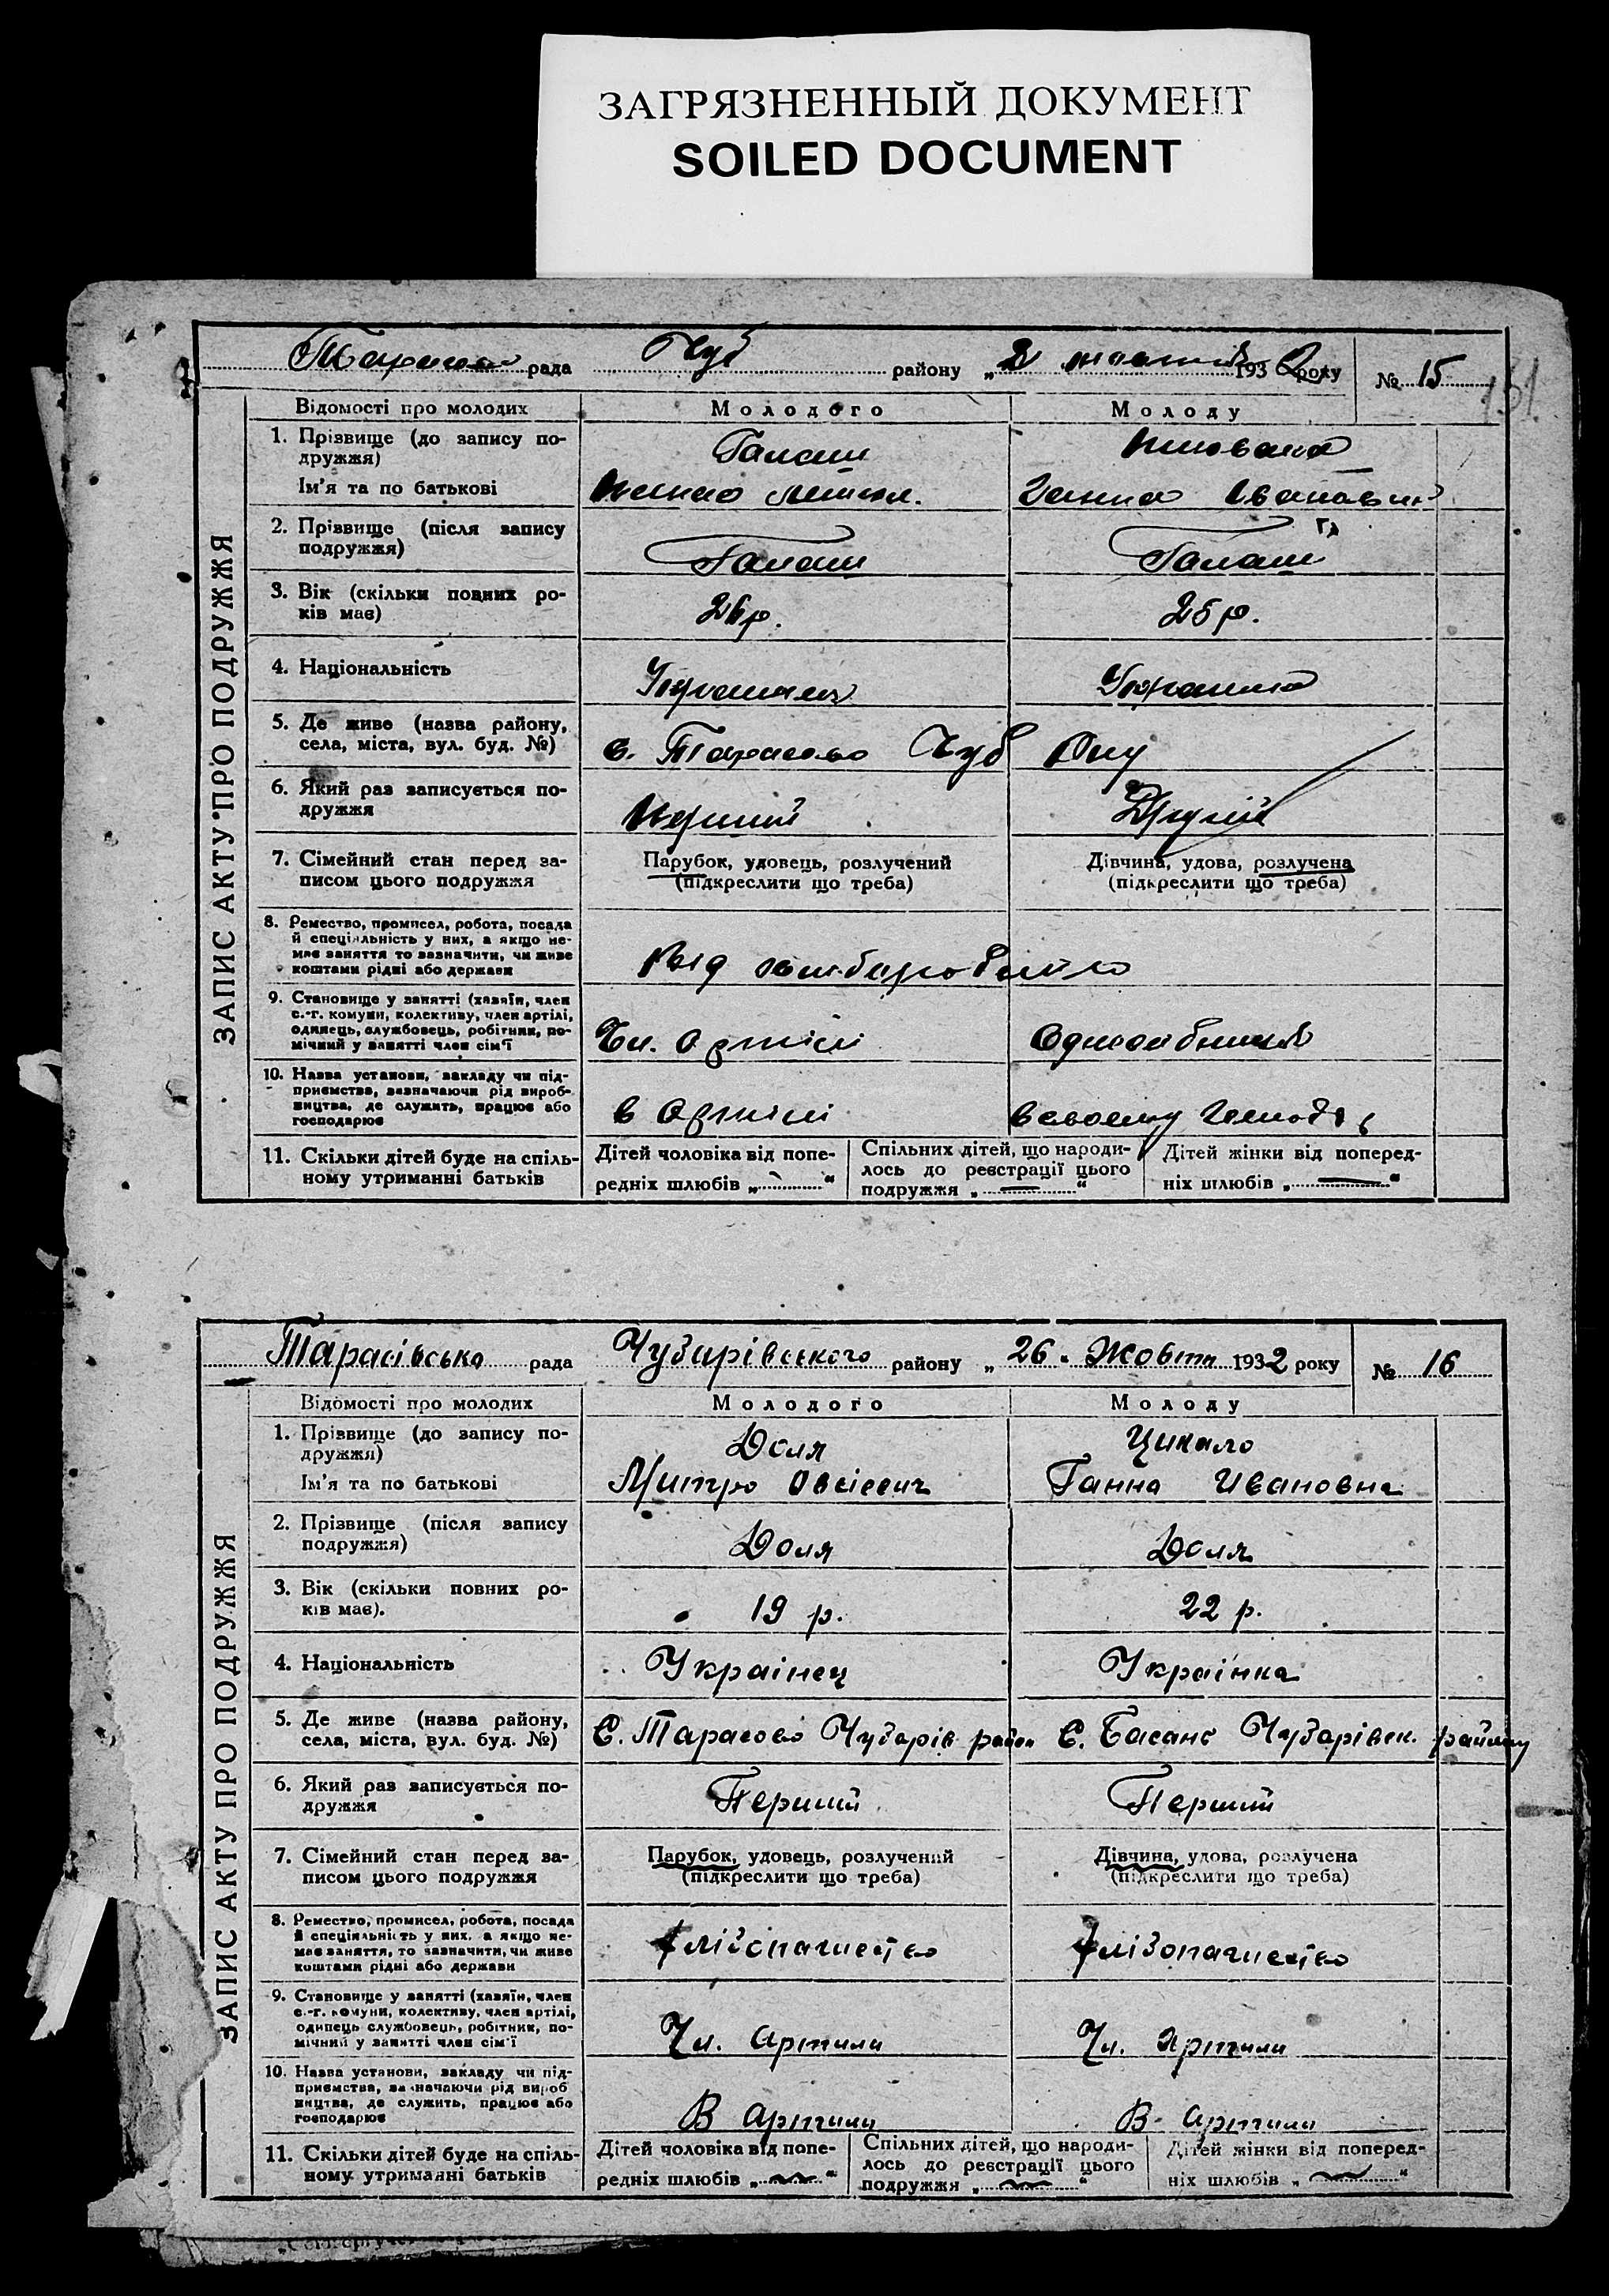 ЗАГРЯЗНЕННЫЙ ДОКУМЕНТ
SOILED DOCUMENT
рада Чуб району „2 1932 року № 15
151
ЗАПИС АКТУ ПРО ПОДРУЖЖЯ
Відомості про молодих Молодого Молоду
1. Прізвище (до запису по-
дружжя) Галаш
Ім'я та по батькові
2. Прізвище (після запису
подружжя) Галаш Галаш
3. Вік (скільки повних ро-
ків має) 26 р. 25 р.
4. Національність
5. Де живе (назва району,
села, міста, вул. буд. №) с. Тарасово Чуб
6. Який раз записується по-
дружжя Перший Другий
7. Сімейний стан перед за-
писом цього подружжя
Парубок, удовець, розлучений Дівчина, удова, розлучена
(підкреслити що треба) (підкреслити що треба)
8. Ремество, промисел, робота, посада
й спеціяльність у них, а якщо не-
має заняття то зазначити, чи живе
коштами рідні або держави
9. Становище у занятті (хазяїн, член
с.-г. комуни, колективу, член артілі,
одинець, службовець, робітник, по-
мічний у занятті член сім'ї Чл. Артілі
10. Назва установи, закладу чи під-
приємства, зазначаючи рід вироб-
ництва, де служить, працює або
господарює в Артілі в своєму
11. Скільки дітей буде на спіль-
ному утриманні батьків
Дітей чоловіка від попе-
редніх шлюбів „ “
Спільних дітей, що народи-
лось до реєстрації цього
подружжя „ — “
Дітей жінки від поперед-
ніх шлюбів „ — “
Тарасівсько рада Чубарівського району „ 26. Жовтн 1932 року № 16
ЗАПИС АКТУ ПРО ПОДРУЖЖЯ
Відомості про молодих Молодого Молоду
1. Прізвище (до запису по-
дружжя) Доля Цикало
Ім'я та по батькові Митро Овсієвич Ганна Ивановна
2. Прізвище (після запису
подружжя) Доля Доля
3. Вік (скільки повних ро-
ків має). 19 р. 22 р.
4. Національність Украінец Украінка
5. Де живе (назва району,
села, міста, вул. буд. №) С. Тарасово Чубарів район С. Басань Чубарівск. району
6. Який раз записується по-
дружжя Перший Перший
7. Сімейний стан перед за-
писом цього подружжя
Парубок, удовець, розлучений Дівчина, удова, розлучена
(підкреслити що треба) (підкреслити що треба)
8. Ремество, промисел, робота, посада
й спеціяльність у них, а якщо не-
має заняття, то зазначити, чи живе
коштами рідні або держави
9. Становище у занятті (хазяїн, член
с.-г. комуни, колективу, член артілі,
одинець службовець, робітник, по-
мічний у занятті член сім'ї Чл. артили Чл. артили
10. Назва установи, закладу чи під-
приємства, зазначаючи рід вироб
ництва, де служить, працює або
господарює В артили В артили
11. Скільки дітей буде на спіль-
ному утриманні батьків
Дітей чоловіка від попе-
редніх шлюбів „ “
Спільних дітей, що народи-
лось до реєстрації цього
подружжя „ “
Дітей жінки від поперед-
ніх шлюбів „ “